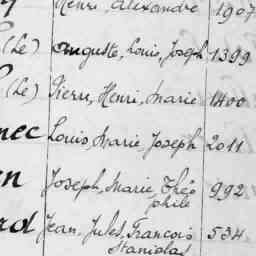 Henri, Alexandre 1907
(Le) Auguste, Louis, Joseph 1399
(Le) Pierre, Henri, Marie 1400
nec Louis, Marie, Joseph 2011
n Joseph, Marie, Théo 992
phile
rd Jean, Jules, François 534
Stanislas